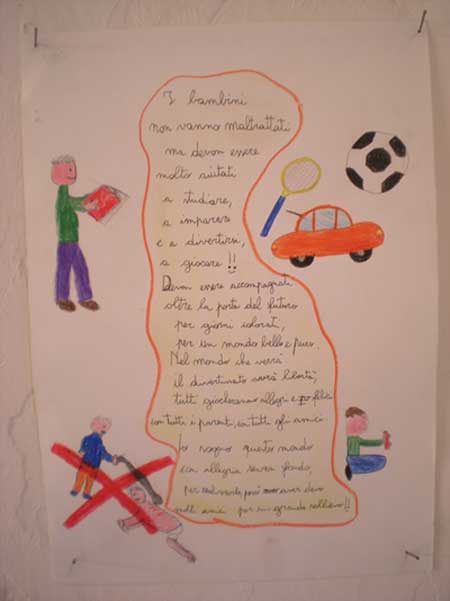 I bambini
non vanno maltrattati
ma devon essere
molto aiutati
a studiare,
a imparare
e a divertirsi,
a giocare!!
Devon essere accompagnati
oltre la porta del futuro
per giorni colorati,
per un mondo bello e puro.
Nel mondo che verrà
il divertimento avrà libertà,
tutti giocheranno allegri e felici
con tutti i parenti, con tutti gli amici.
Io sogno questo mondo
con allegria senza fondo,
per però aver devo
molti amici per un grande sollievo!!